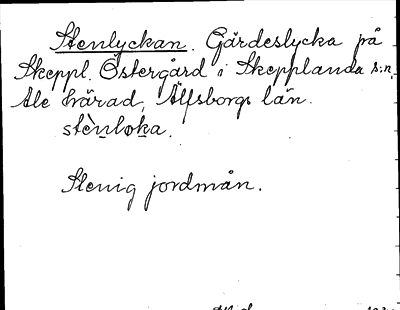 Stenlyckan. Gärdeslycka på
Skeppl. Östergård i Skepplanda s:n,
Ale härad, Älfsborgs län.
stènloka.
Stenig jordmån.